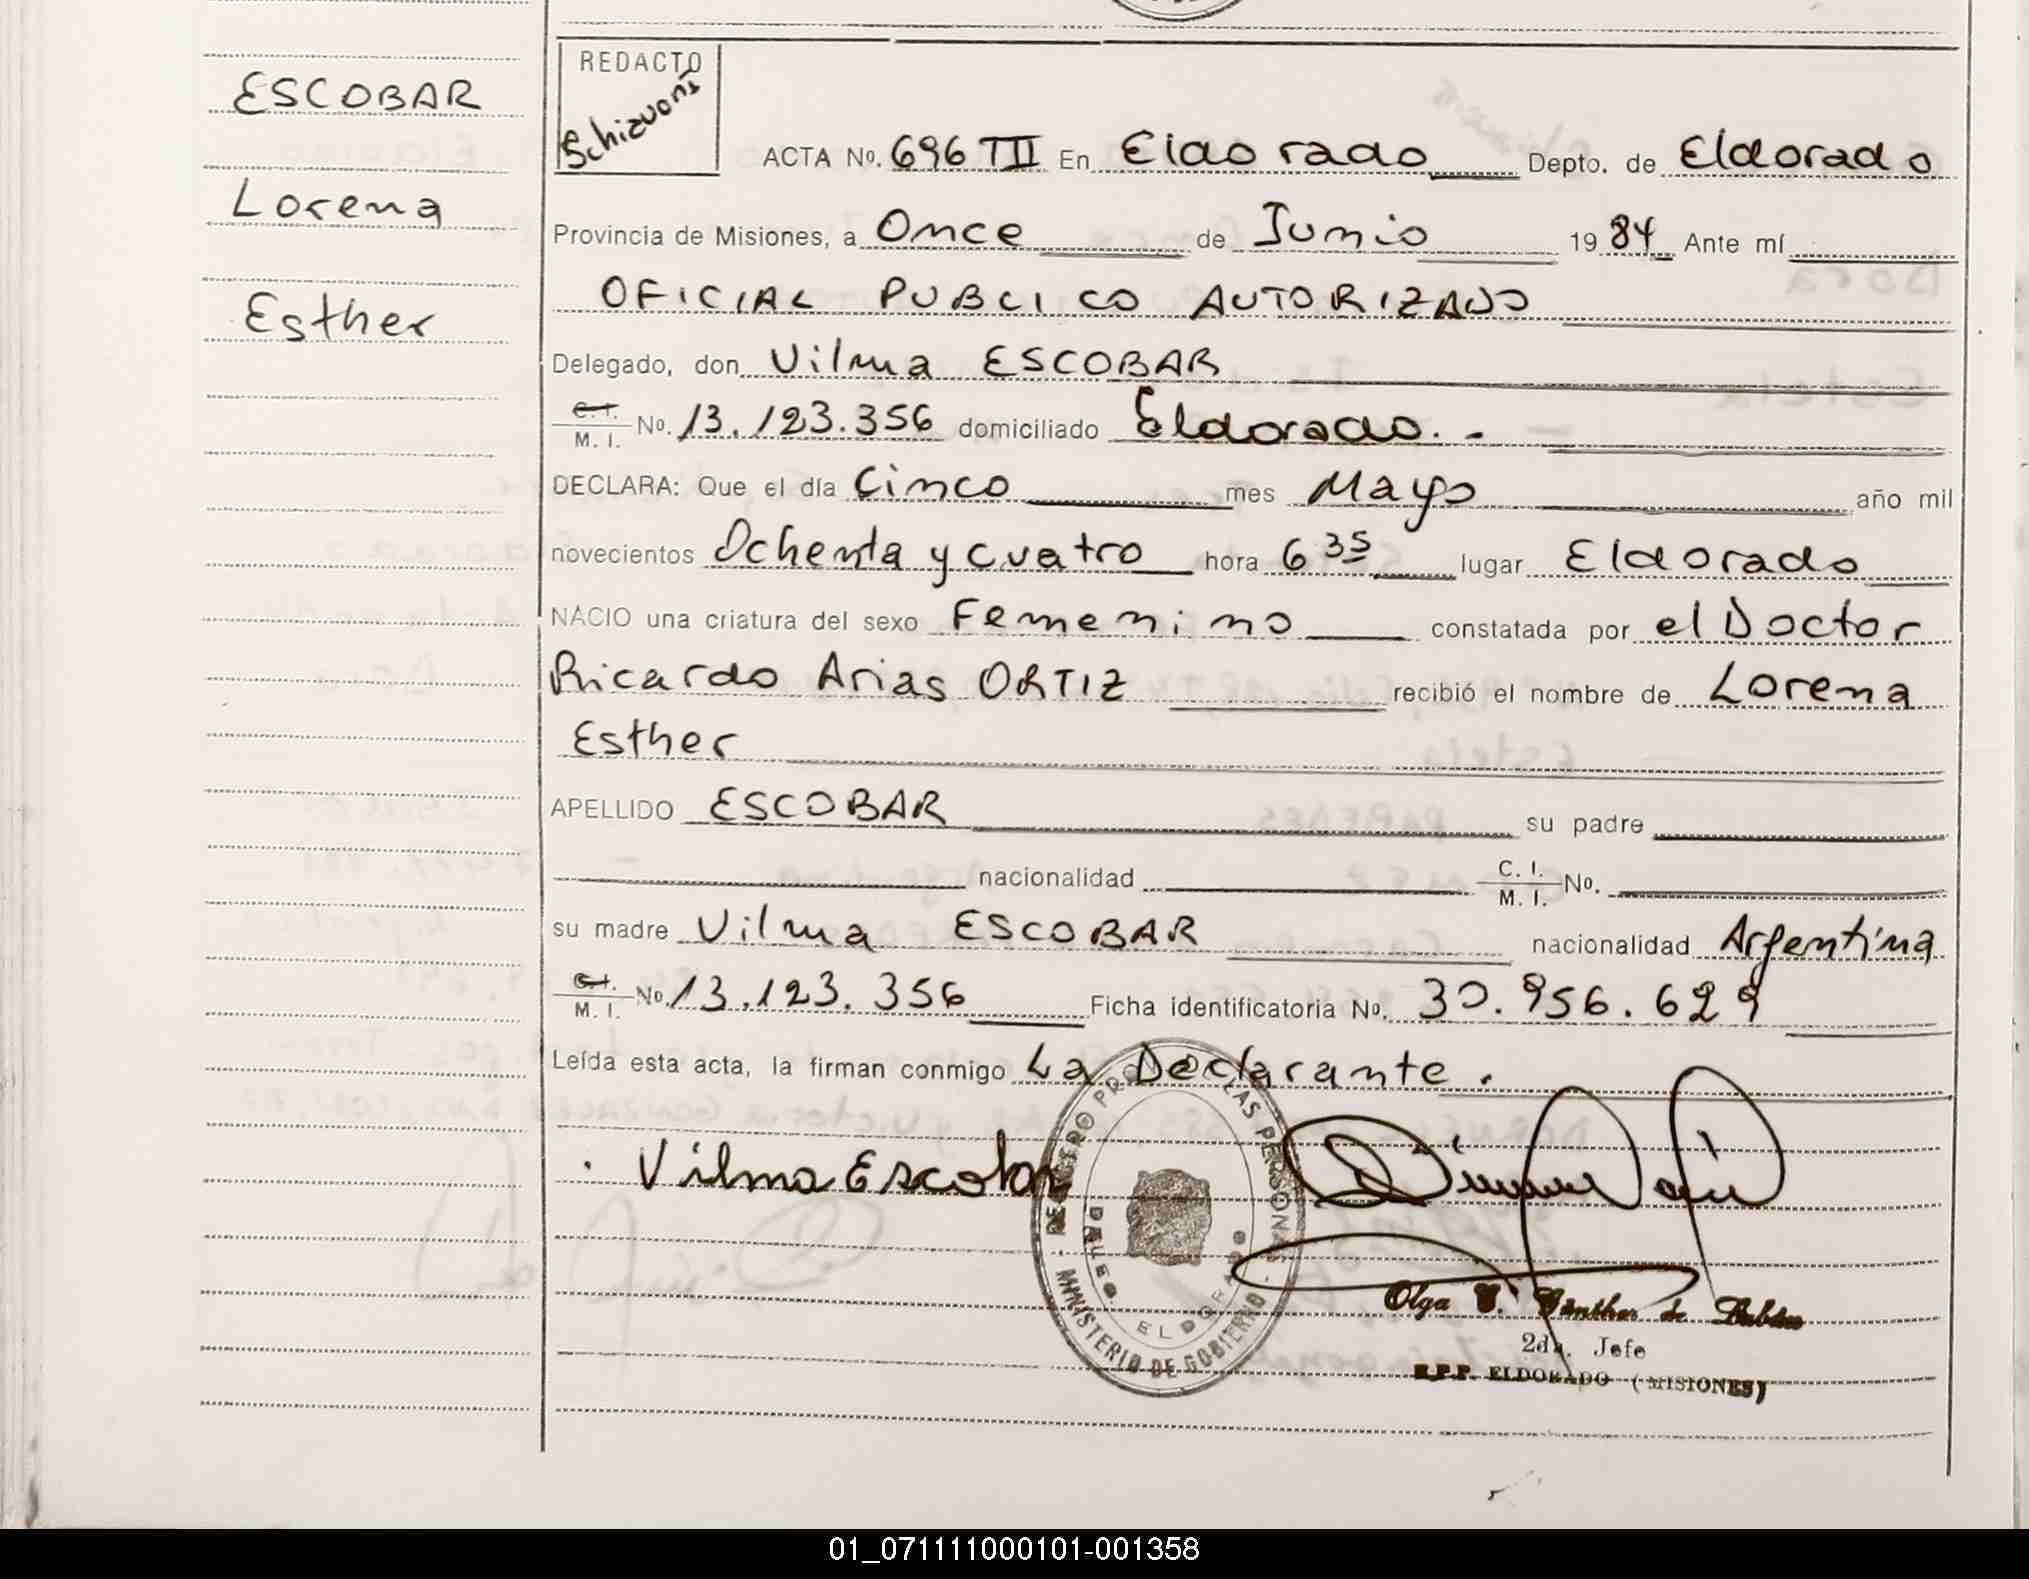 ESCOBAR
Lorena
Esther
REDACTO
Schiavoni
ACTA No. 696 TII En Eldorado Depto. de Eldorado
Provincia de Misiones, a Once de Junio 1984 Ante mí
OFICIAL PUBLICO AUTORIZADO
Delegado, don Vilma ESCOBAR
C.I. M. I. No. 13.123.356 domiciliado Eldorado.-
DECLARA: Que el día Cinco mes Mayo año mil
novecientos Ochenta y cuatro hora 6 35 lugar Eldorado
NACIO una criatura del sexo Femenino constatada por el Doctor
Ricardo Arias ORTIZ recibió el nombre de Lorena
Esther
APELLIDO ESCOBAR su padre
nacionalidad C. I. M. I. No.
su madre Vilma ESCOBAR nacionalidad Argentina
C.I. M. I. No. 13.123.356 Ficha identificatoria No. 30.956.629
Leída esta acta, la firman conmigo La Declarante.
Vilma Escobar
REGISTRO PROV. LAS PERSONAS
DELEG. ELDORADO
MINISTERIO DE GOBIERNO
Olga Günther de
2da. Jefe
R.P.P. ELDORADO (MISIONES)
01_071111000101-001358